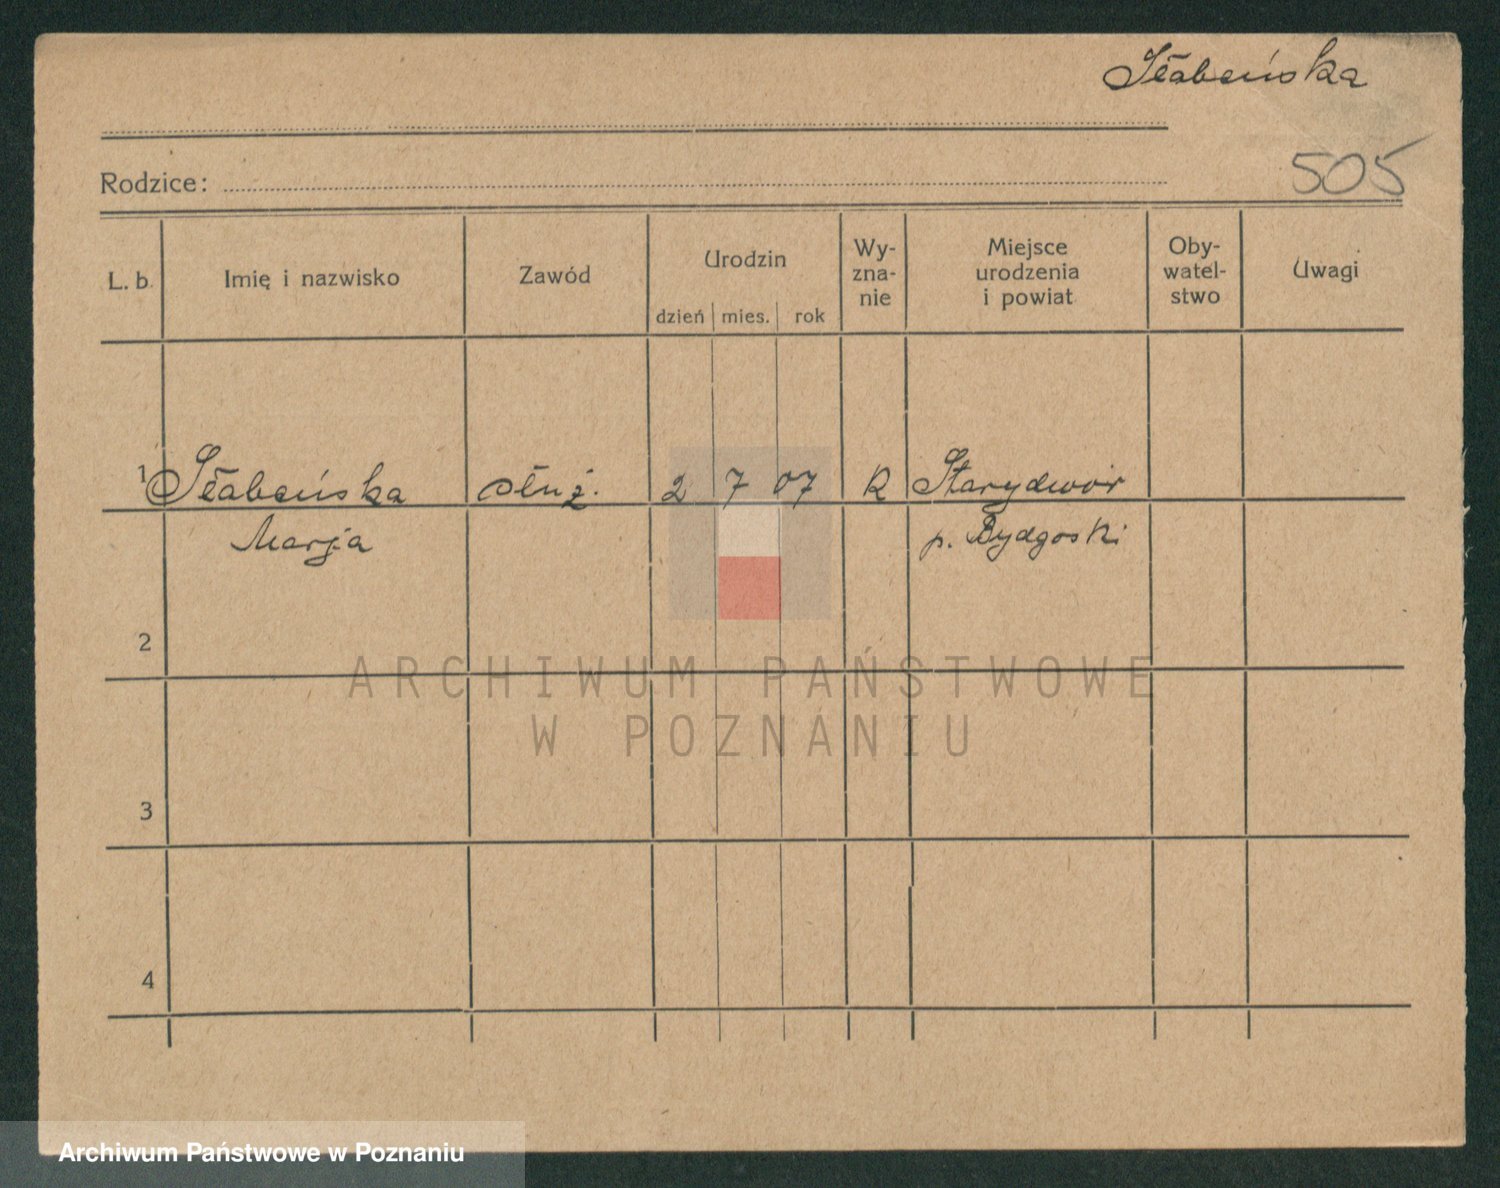 Słabeńska
505
Rodzice:
L. b. Imię i nazwisko Zawód Urodzin dzień mies. rok Wy-znanie Miejsce urodzenia i powiat Oby-watel-stwo Uwagi
1 Słabeńska służ. 2 7 07 R Starydwór
Marja p. Bydgoski
2
ARCHIWUM PAŃSTWOWE
W POZNANIU
3
4
Archiwum Państwowe w Poznaniu